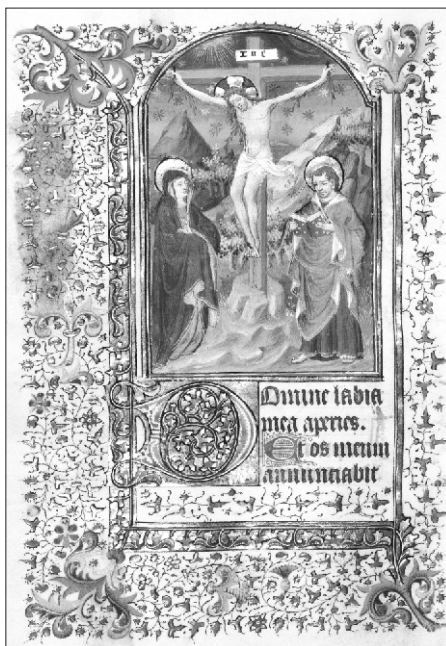 DOmine labia
mea aperies.
Et os meum
annunciabit